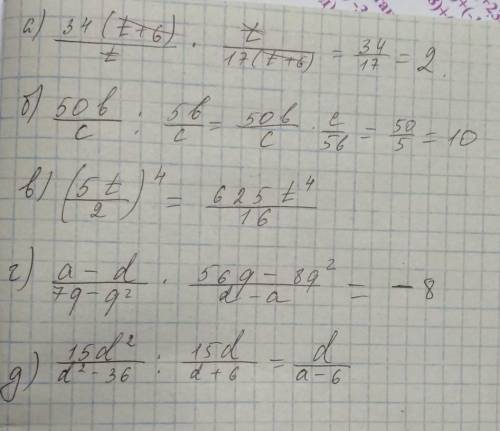 а) 34(t+6)/t · t/17(t+6) = 34/17 = 2.
б) 50b/c : 5b/c = 50b/c · c/5b = 50/5 = 10
в) (5t/2)^4 = 625t^4/16
г) a-d/7g-g² · 56g-8g²/d-a = -8
д) 15d²/d²-36 : 15d/d+6 = d/a-6